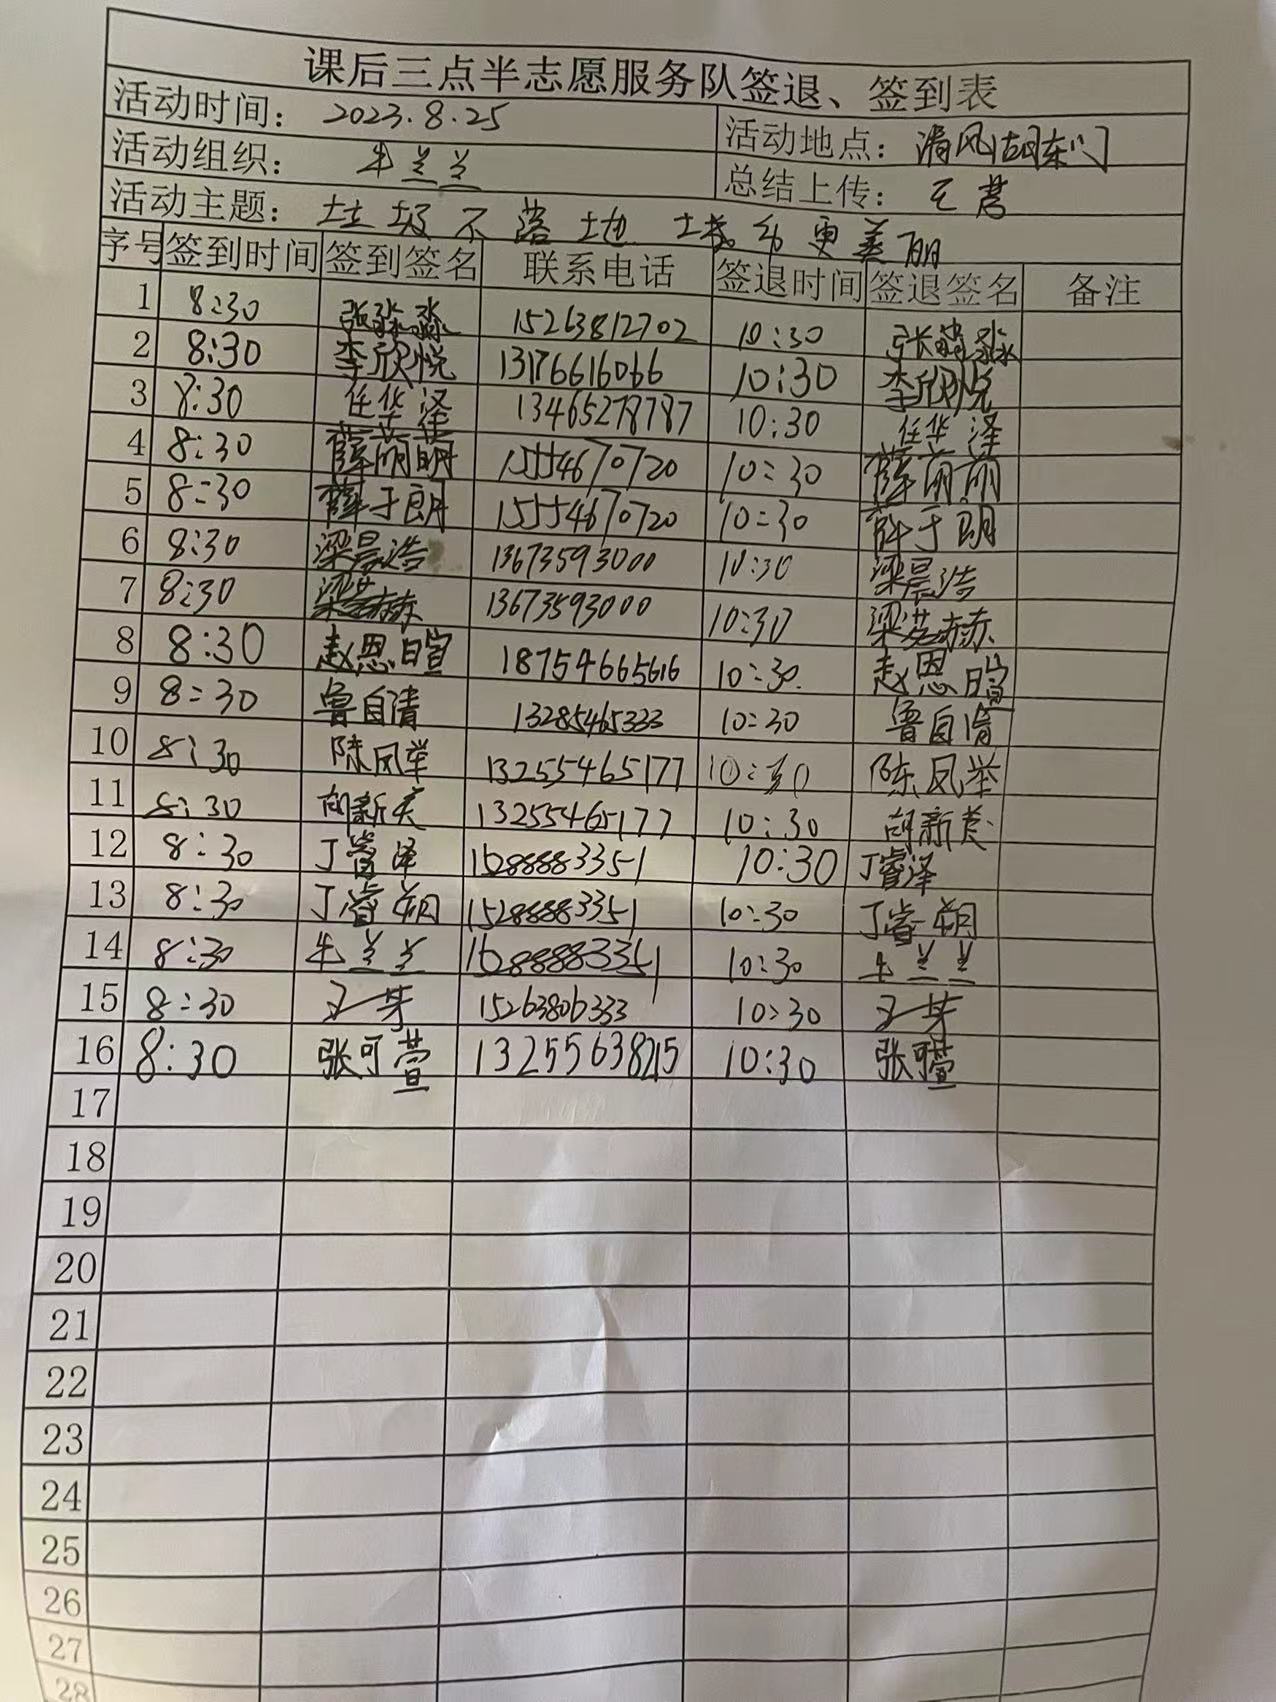 课后三点半志愿服务队签退、签到表
活动时间： 2023.8.25 活动地点： 清风湖东门
活动组织： 牛兰兰 总结上传： 王营
活动主题： 垃圾不落地 城乡更美丽
序号 签到时间 签到签名 联系电话 签退时间 签退签名 备注
1 8:30 15263812702 10:30
2 8:30 李欣悦 13176616066 10:30 李欣悦
3 8:30 任华泽 13465278787 10:30 任华泽
4 8:30 薛丽丽 15554670720 10:30 薛丽丽
5 8:30 薛于朗 15554670720 10:30 薛于朗
6 8:30 梁晨浩 13673593000 10:30 梁晨浩
7 8:30 13673593000 10:30 梁芸赫
8 8:30 赵恩暄 18754665616 10:30 赵恩暄
9 8:30 鲁自清 13285465333 10:30 鲁自清
10 8:30 陈凤举 13255465177 10:30 陈凤举
11 8:30 胡新美 13255465177 10:30 胡新美
12 8:30 丁睿泽 15288883351 10:30 丁睿泽
13 8:30 丁睿朔 15288883351 10:30 丁睿朔
14 8:30 牛兰兰 15288883351 10:30 牛兰兰
15 8:30 15263806333 10:30
16 8:30 张可萱 13255638215 10:30 张可萱
17
18
19
20
21
22
23
24
25
26
27
28